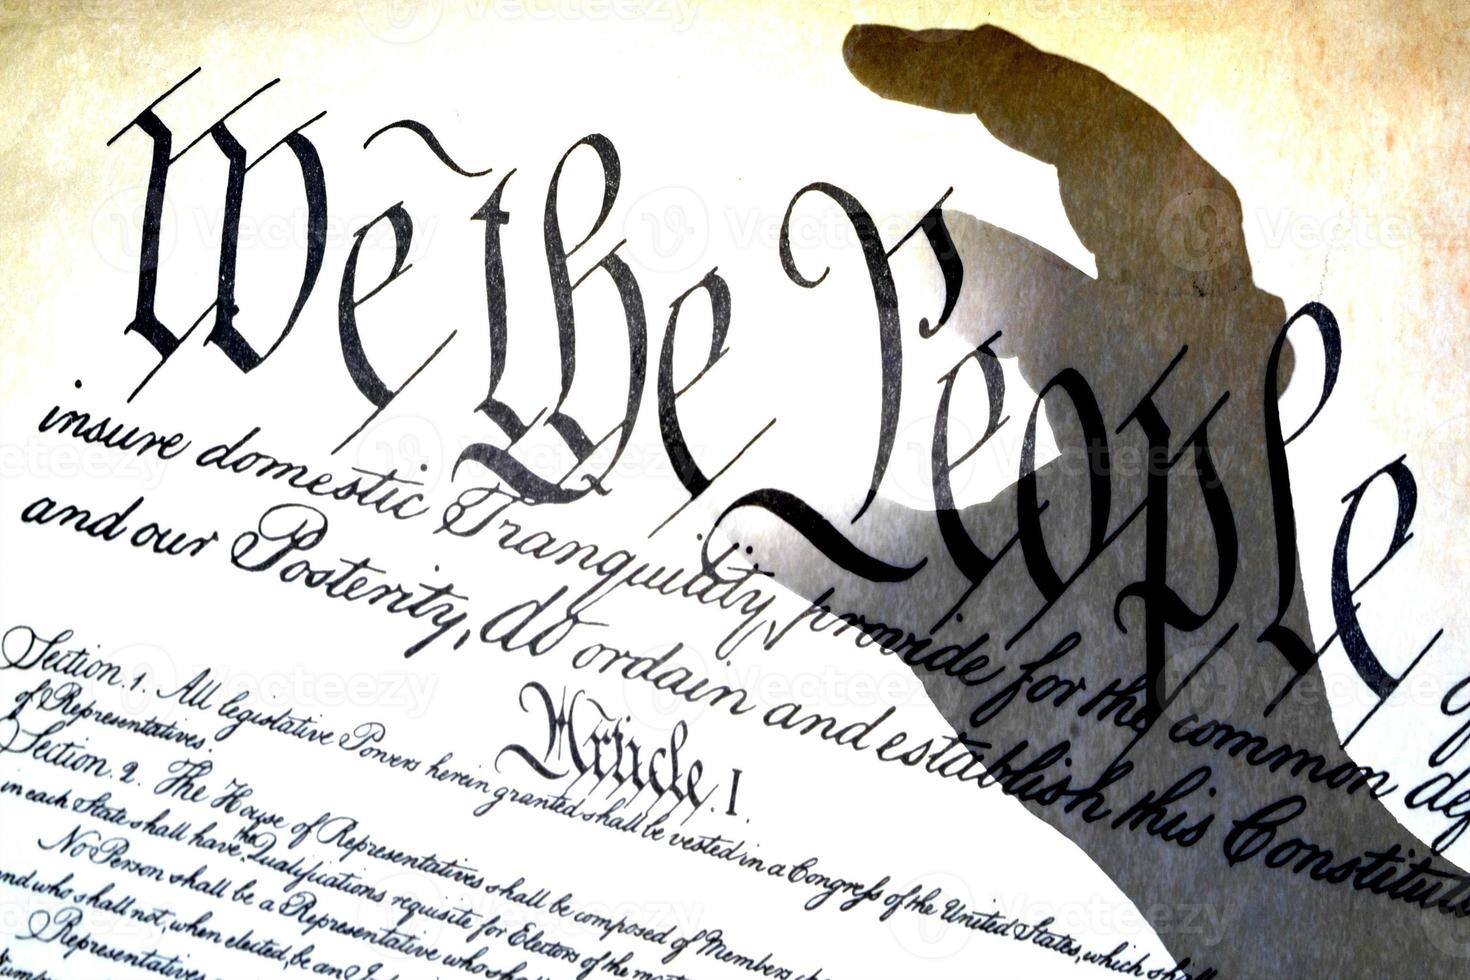 We the People
insure domestic Tranquility, provide for the common
and our Posterity, do ordain and establish this
Article. I.
Section. 1. All legislative Powers herein granted shall be vested in a Congress of the United States, which
of Representatives.
Section. 2. The House of Representatives shall be composed of Members
in each State shall have the Qualifications requisite for Electors of the most
No Person shall be a Representative who shall
and who shall not, when elected, be an
Representatives
Vecteezy